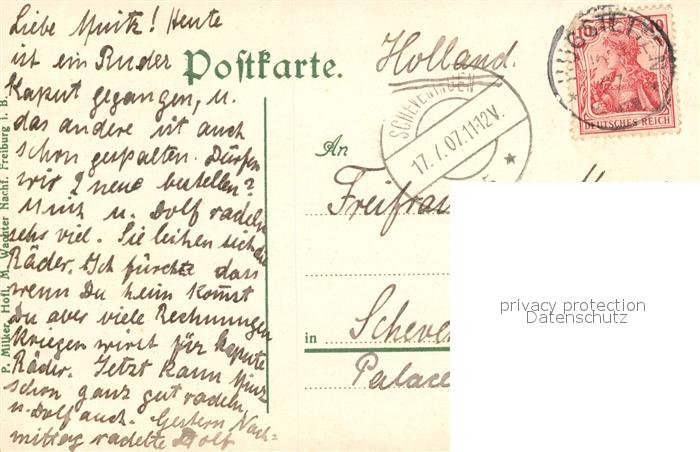 Liebe Mutz! Heute
ist ein Ruder
kaput gegangen, u.
das andere ist auch
schon gespalten. Dürfen
wir 2 neue bestellen?
u. Dolf radeln
sehr viel. Sie leihen sich die
Räder. Ich fürchte dass
wenn Du heim kommst
Du aber viele Rechnungen
kriegen wirst für kaputte
Räder. Jetzt kann
schon ganz gut radeln
u. Dolf auch. Gestern Nach-
mittag radelte Dolf
P. Milker, Hofl. M. Wachter Nachf. Freiburg i. B.
Postkarte.
Holland.
SCHEVENINGEN
17.7.07.11-12V.
10
DEUTSCHES REICH
An
Freifrau
in
Scheven
Palace
privacy protection
Datenschutz